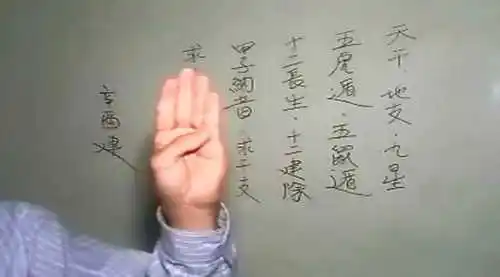 天干．地支．九星
五虎遁．五鼠遁
十二長生．十二建除
甲子納音．求干支
求
辛酉